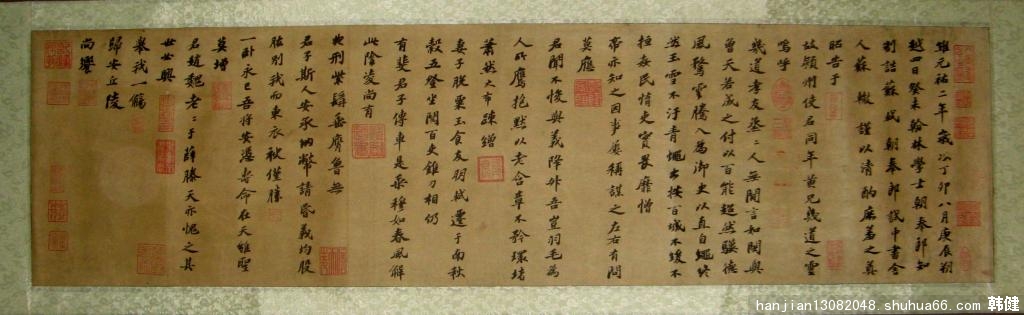 維元祐二年歲次丁卯八月庚辰朔
越四日癸未翰林學士朝奉郎知
制誥蘇軾朝奉郎試中書舍
人蘇轍謹以清酌庶羞之奠
昭告于
故潁州使君同年黃兄幾道之靈
嗚呼
幾道孝友烝烝人無間言如閔與
曾天若成之付以百能超然驥德
風騖雲騰入為御史以直自繩終
然玉雪不汙青蠅出按百城不緩不
拒姦民惰吏實畏靡憎
帝亦知之因事屢稱謀之左右有問
莫應
君聞不悛與義降升吾豈羽毛為
人所鷹抱默以老含章不矜環堵
蕭然大布疎繒
妻子脫粟玉食友朋軾遷于南秋
穀五登坐閱百吏錐刀相仍
有斐君子傳車是乘穆如春風解
此陰凌尚有
典刑紫髯垂膺魯無
君子斯人安承納幣請昏義均股
肱別我而東衣袂僅勝
一臥永已吾將安憑壽命在天雖聖
莫增
君趙魏老老于薛滕天亦愧之其
世必興
舉我一觴
歸安丘陵
尚饗
hanjian13082048.shuhua66.com 韩健